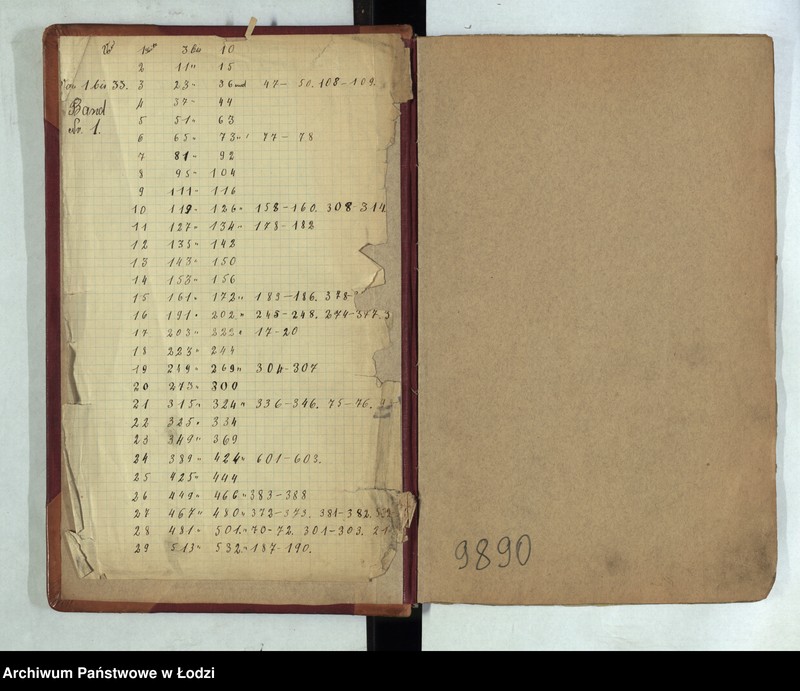 № 1 von 3 bis 10
2 11 " 15
Von 1 bis 33. 3 23 " 36 und 47 - 50. 108 - 109.
Band 4 37 " 44
№ 1. 5 51 " 63
6 65 " 73 " 77 - 78
7 81 " 92
8 95 " 104
9 111 " 116
10 119 " 126 " 158 - 160. 308 - 314
11 127 " 134 " 178 - 182
12 135 " 142
13 143 " 150
14 153 " 156
15 161 " 172 " 183 - 186. 378
16 191 " 202 " 245 - 248. 274 - 377.
17 203 " 222 " 17 - 20
18 223 " 244
19 249 " 269 " 304 - 307
20 273 " 300
21 315 " 324 " 336 - 346. 75 - 76.
22 325 " 334
23 349 " 369
24 389 " 424 " 601 - 603.
25 425 " 444
26 449 " 466 " 383 - 388
27 467 " 480 " 372 - 373. 381 - 382.
28 481 " 501 " 70 - 72. 301 - 303.
29 513 " 532 " 187 - 190.
9890
Archiwum Państwowe w Łodzi